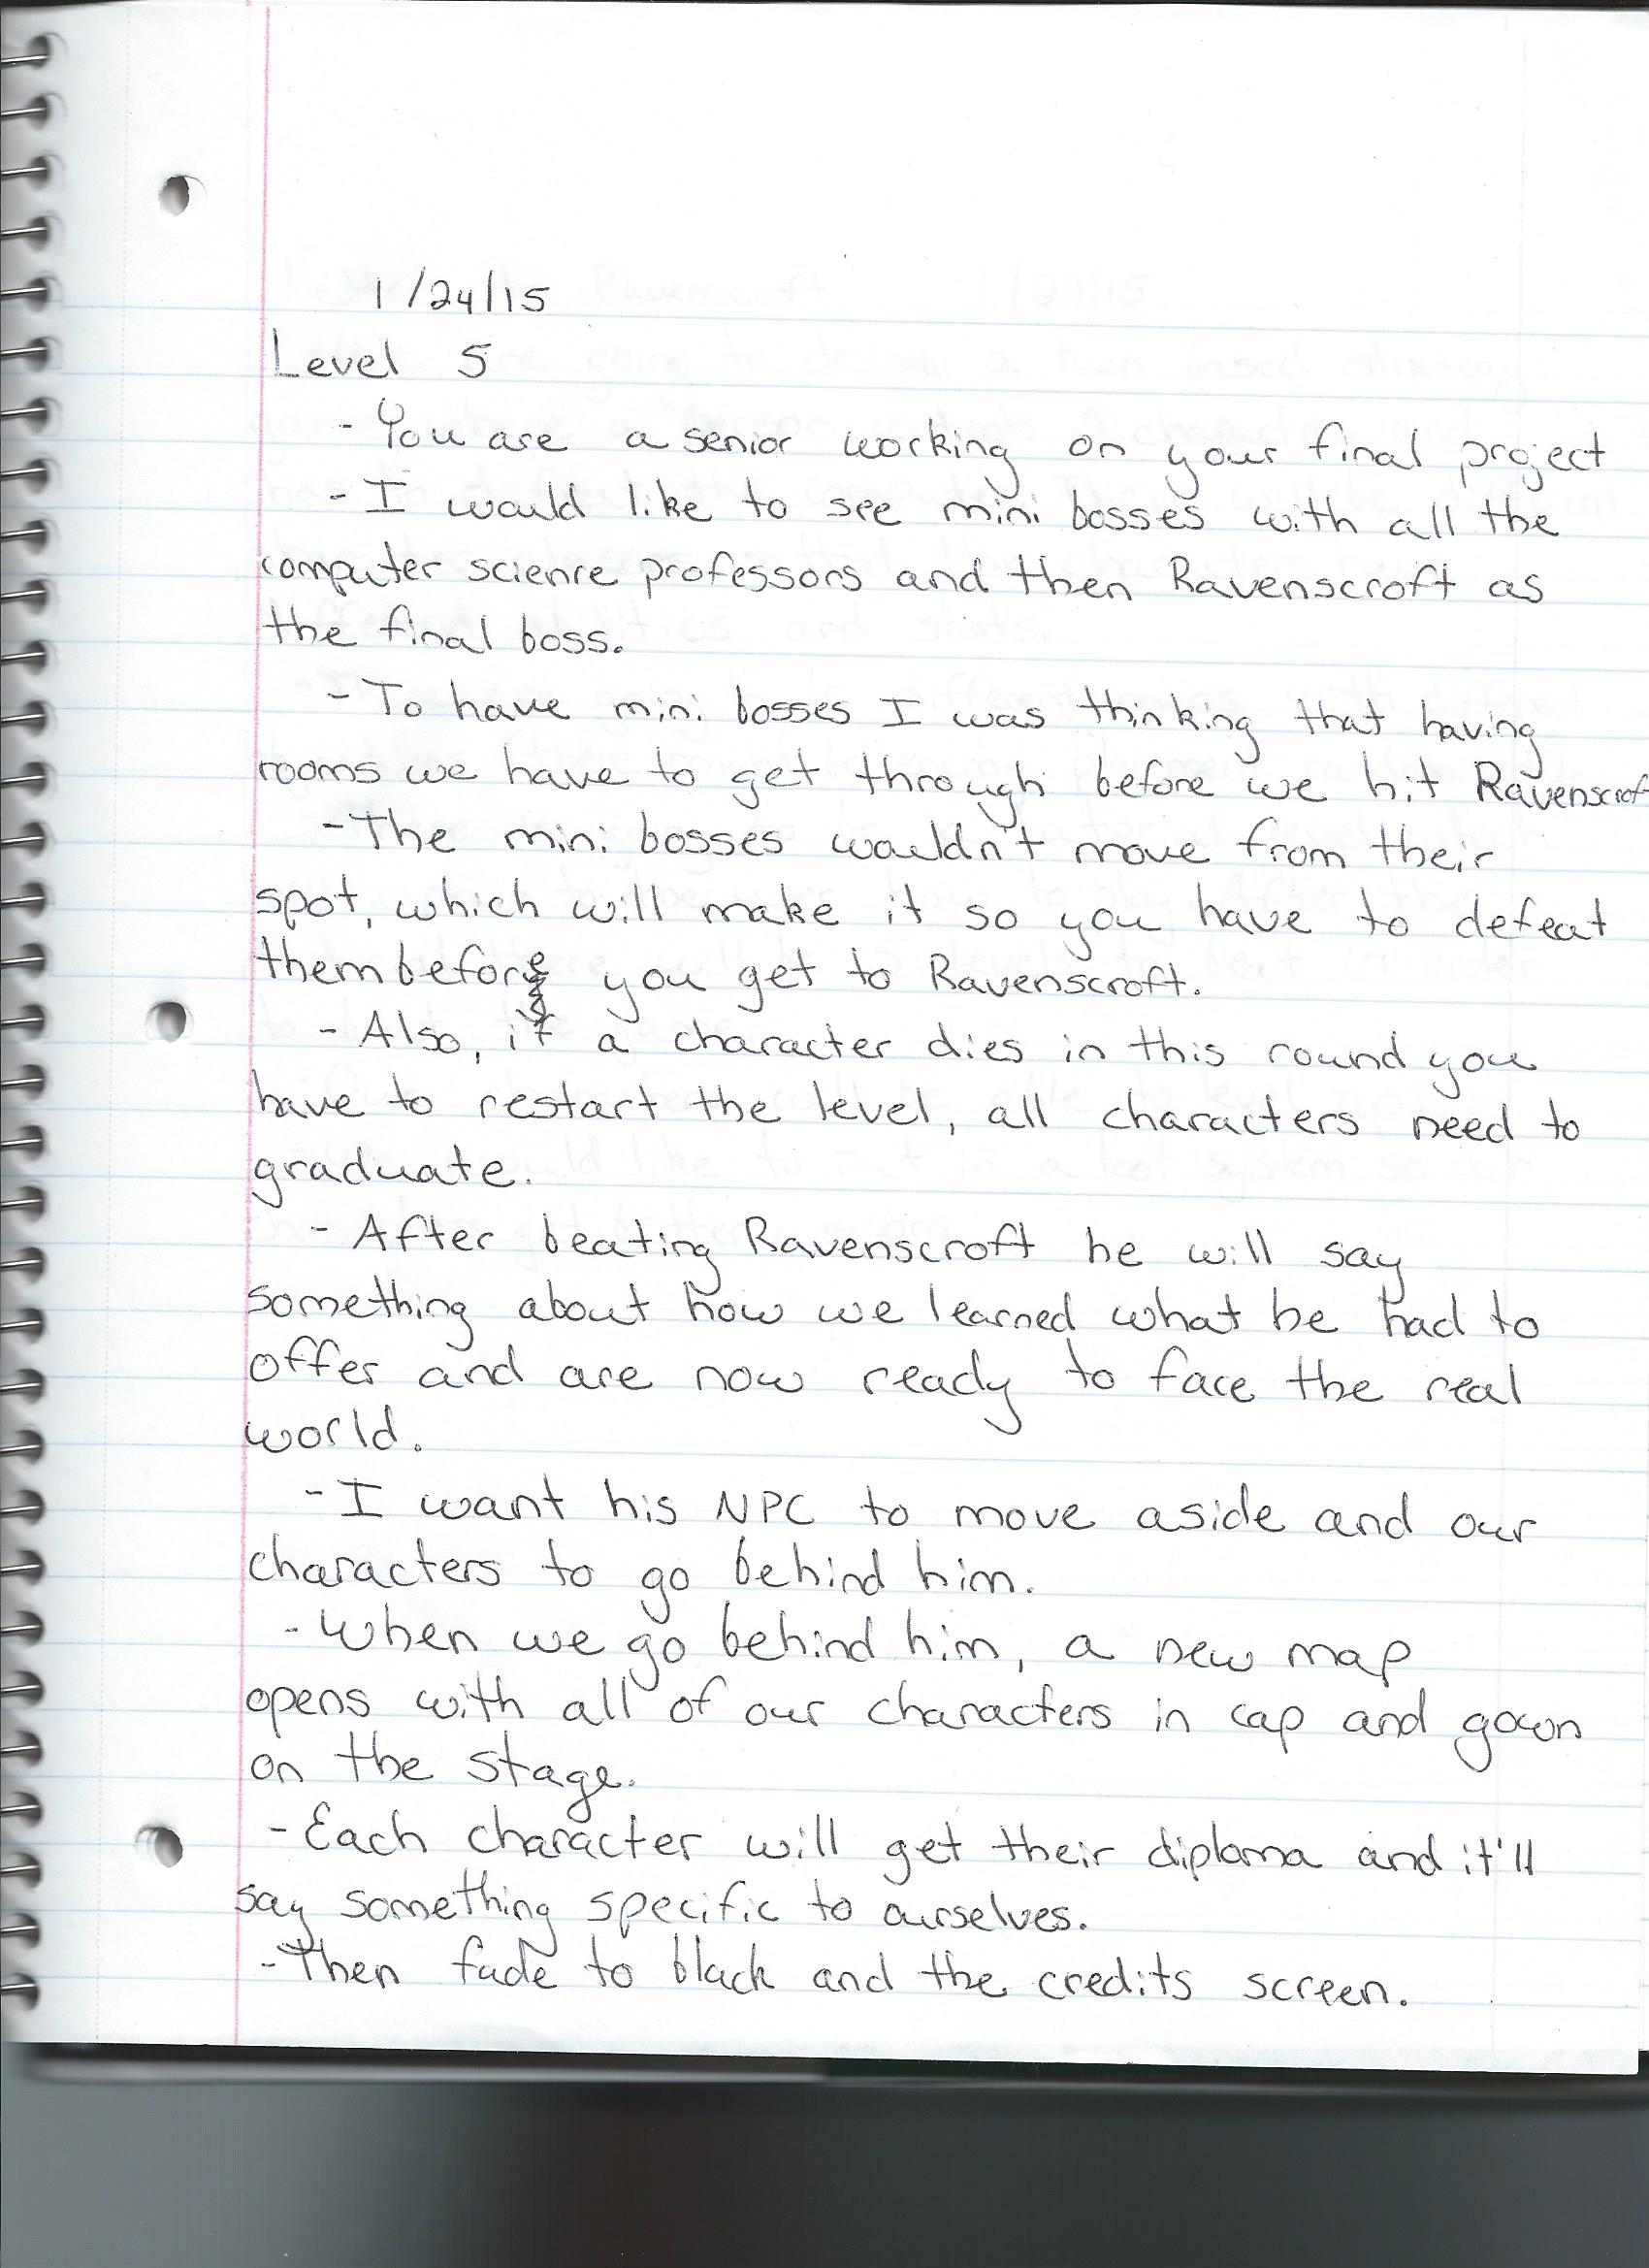 1/24/15
Level 5
- You are a senior working on your final project
- I would like to see mini bosses with all the
computer science professors and then Ravenscroft as
the final boss.
- To have mini bosses I was thinking that having
rooms we have to get through before we hit Ravenscroft
- The mini bosses wouldn't move from their
spot, which will make it so you have to defeat
them before you get to Ravenscroft.
- Also, if a character dies in this round you
have to restart the level, all characters need to
graduate.
- After beating Ravenscroft he will say
something about how we learned what he had to
offer and are now ready to face the real
world.
- I want his NPC to move aside and our
characters to go behind him.
- When we go behind him, a new map
opens with all of our characters in cap and gown
on the stage.
- Each character will get their diploma and it'll
say something specific to ourselves.
- Then fade to black and the credits screen.